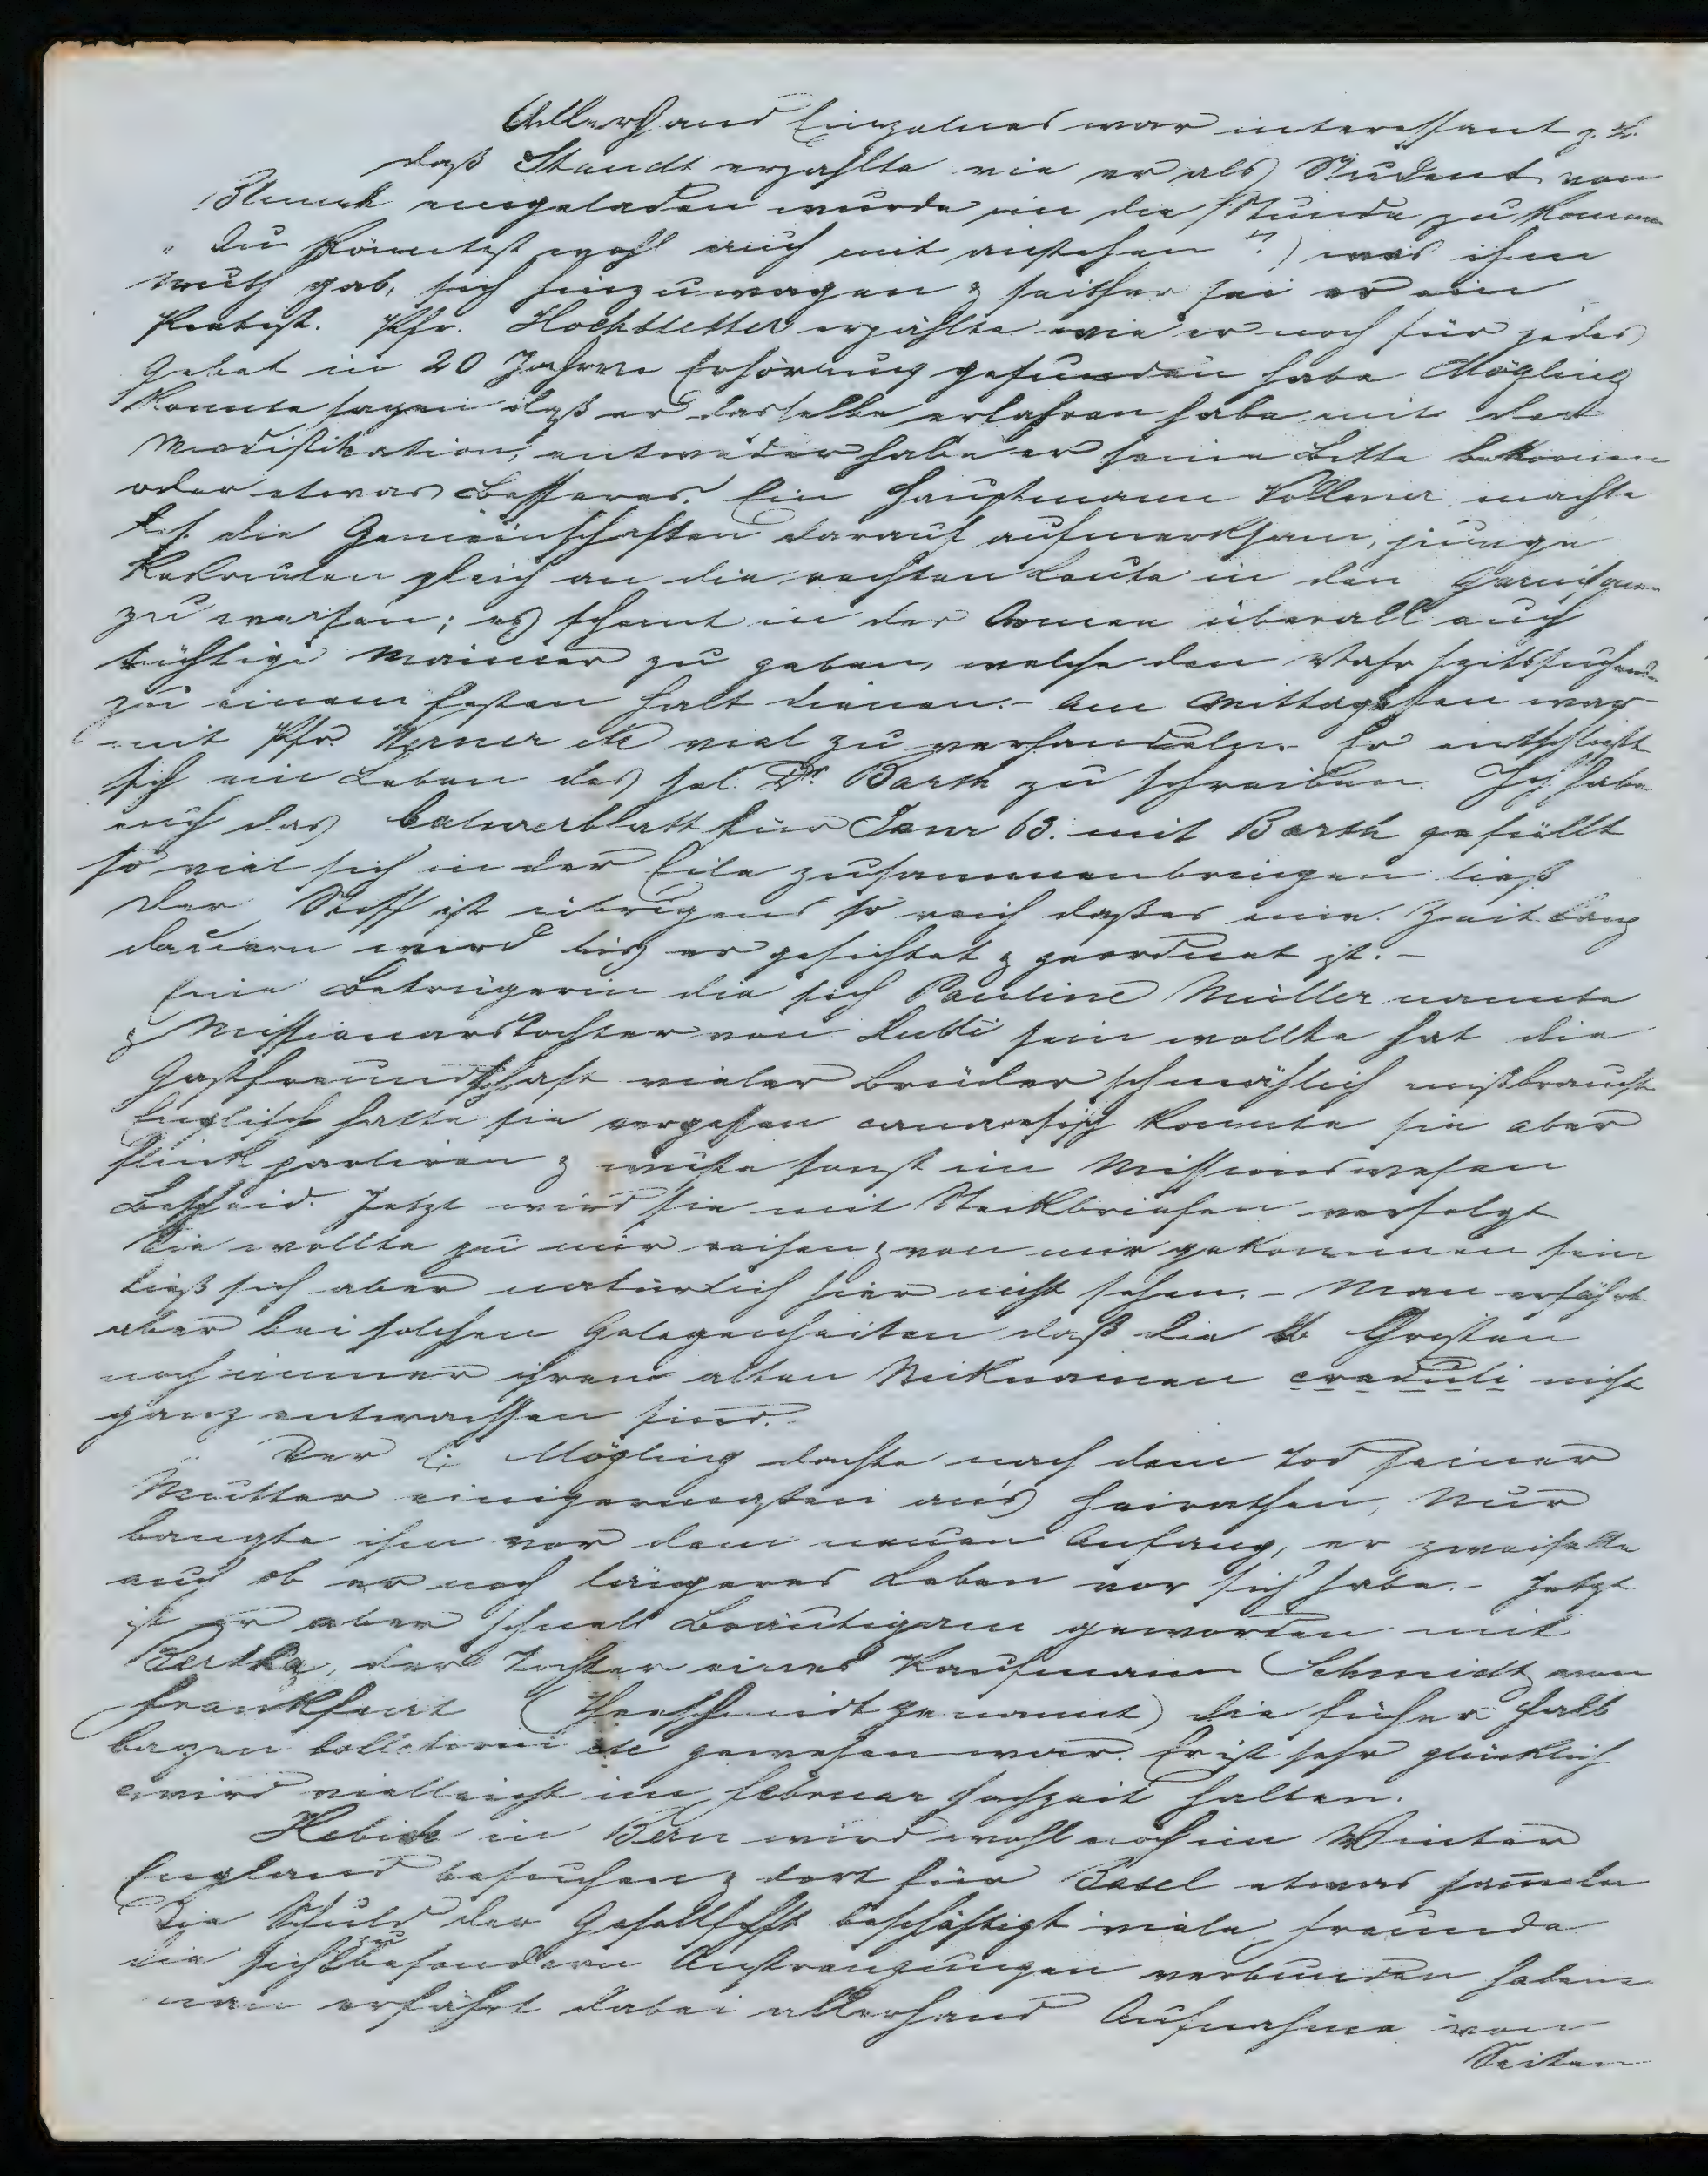 Allerhand Einzelnes war interessant z. B.
daß Staudt erzählte wie er als Student von
eingeladen wurde in die Stunde zu kommen
" Du könntest wohl auch mit anstehen "?) was ihm
Muth gab, sich hinzuwagen & seither sei er ein
Pietist. Pfr. Hochstetter erzählte wie er noch für jedes
Gebet in 20 Jahren Erhörung gefunden habe Mögling
konnte sagen daß er dasselbe erfahren habe mit der
Modifikation, entweder habe er seine Bitte bekommen
oder etwas Besseres. Ein Hauptmann Vollmer machte
die Gemeinschaften darauf aufmerksam, junge
Rekruten gleich an die rechten Leute in den Garnisonen
zu weisen; es scheint in der Armee überall auch
tüchtige Männer zu geben, welche den Wahrheitssuchenden
zu einem festen Halt dienen. - Am Mittagessen war
mit Pfr. Werner etc viel zu verhandeln. Er entschließt
sich ein Leben des sel. Dr Barth zu schreiben. Ich habe
auch das Calwerblatt für Janr 63. mit Barth gefüllt
so viel sich in der Eile zusammenbringen ließ
Der Stoff ist übrigens so reich daß es eine Zeit lang
dauern wird bis er gesichtet & geordnet ist. -
Eine Betrügerin die sich Pauline Müller nannte
& Missionarstochter von Hubli sein wollte hat die
Gastfreundschaft vieler Brüder schmählich mißbraucht
Englisch hatte sie vergessen canaresisch konnte sie aber
flink parliren & wußte sonst im Missionswesen
Bescheid. Jetzt wird sie mit Steckbriefen verfolgt
Sie wollte zu mir reisen & von mir gekommen sein
ließ sich aber natürlich hier nicht sehen. - Man erfährt
aber bei solchen Gelegenheiten daß die lb Christen
noch immer ihrem alten Nicknamen creduli nicht
ganz entwachsen sind.
Der l. Mögling dachte nach dem Tod seiner
Mutter einigermaßen an's Heirathen, Nur
bangte ihm vor dem neuen Anfang, er zweifelte
auch ob er noch längeres Leben vor sich habe. - Jetzt
ist er aber schnell Bräutigam geworden mit
Bertha, der Tochter eines Kaufmann Schmidt von
Frankfurt (Theeschmidt genannt) die früher Halb
batzen Collectorin etc gewesen war. Er ist sehr glücklich
& wird vielleicht im Februar Hochzeit halten.
Hebich in Bern wird wohl noch im Winter
England besuchen & dort für Basel etwas sammeln
Die Schuld der Gesellschft beschäftigt viele Freunde
die sich zu besondern Anstrengungen verbunden haben
man erfährt dabei allerhand Aufnahme von
Seiten